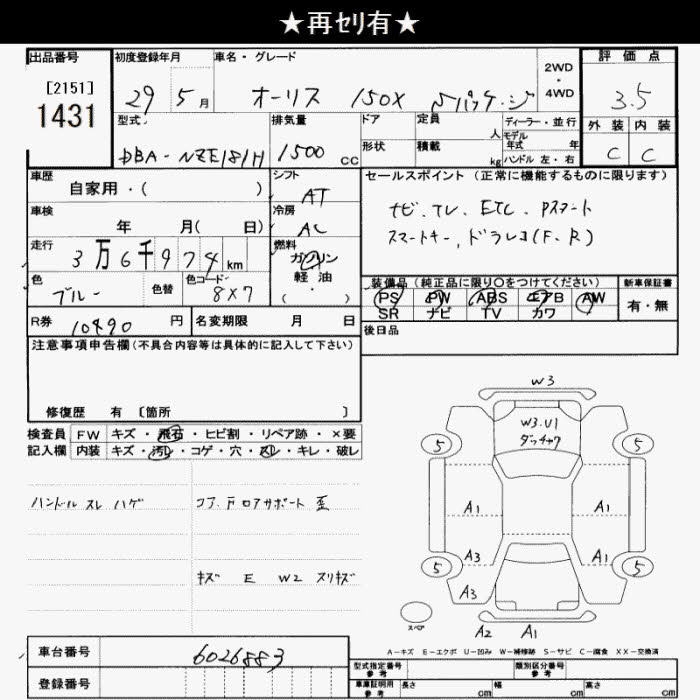 ★再ｾﾘ有★
出品番号 初度登録年月 車名・グレード 2WD・4WD 評価点
[2151]
1431
29 5月 オーリス 150X Sパッケージ 3.5
型式 排気量 ドア 定員 人 ディーラー・並行 外装 内装
モデル年式 年
DBA-NZE181H 1500 CC 形状 積載 kg ハンドル 左・右 C C
車歴 自家用・( ) シフト AT セールスポイント (正常に機能するものに限ります)
車検 年 月( 日) 冷房 AC ナビ.TV. ETC. Pスタート
走行 3万6千974km 燃料 ガソリン 軽油 ・( ) スマートキー,ドラレコ(F.R)
色 ブルー 色替 色コード 8X7 装備品(純正品に限り〇をつけてください) 新車保証書
PS PW ABS エアB AW 有・無
SR ナビ TV カワ
R券 10490 円 名変期限 月 日 後日品
注意事項申告欄(不具合内容等は具体的に記入して下さい)
修復歴 有 〔箇所 〕
検査員 FW キズ・飛石・ヒビ割・リペア跡・×要
記入欄 内装 キズ・汚れ・コゲ・穴・スレ・キレ・破レ
ハンドル スレ ハゲ
コア.ドロアサポート 歪
キズ E W2 スリキズ
W3
W3.U1
5 5
A1 A1
A3 A1
5 5
A3
スペア
A2 A1
A－キズ E－エクボ U－凹み W－補修跡 S－サビ C－腐食 XX－交換済
車台番号 6026883
登録番号
型式指定番号 参考 類別区分番号 参考
車庫証明用 参考 長さ cm 幅 cm 高さ cm